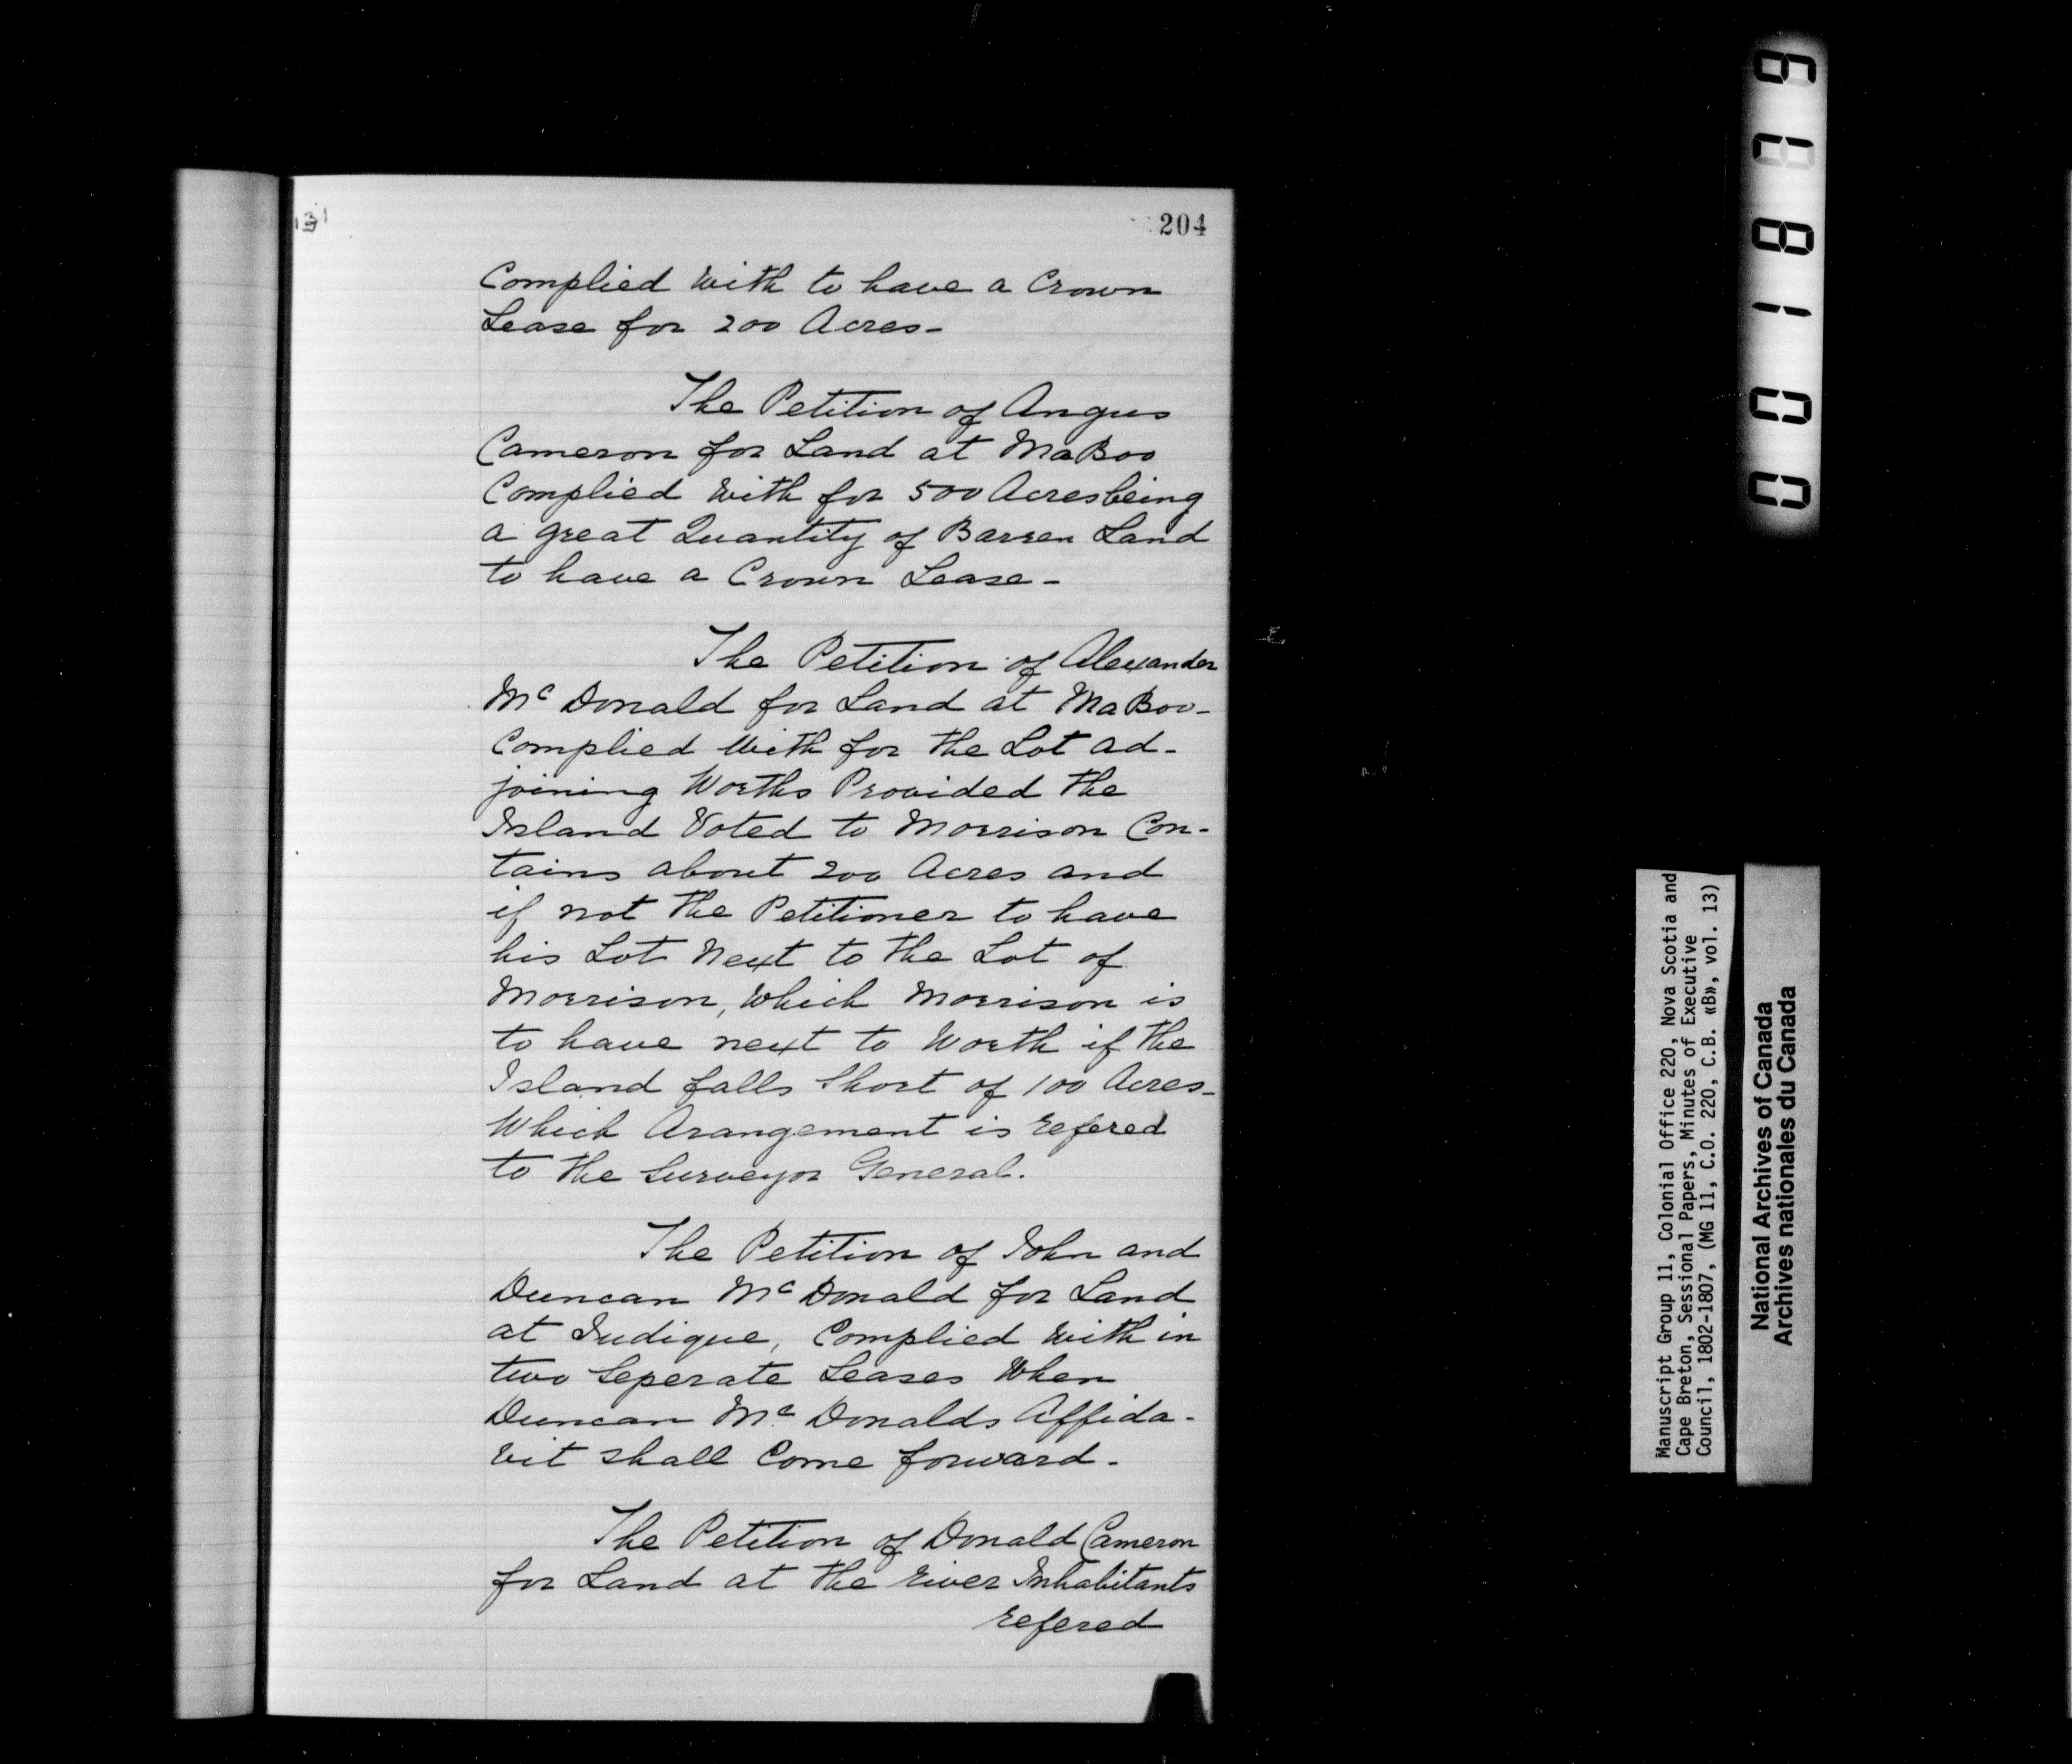 131
204
Complied with to have a Crown
Lease for 200 Acres-
The Petition of Angus
Cameron for Land at MaBoo
Complied with for 500 Acres being
a great Quantity of Barren Land
to have a Crown Lease-
The Petition of Alexander
McDonald for Land at MaBoo-
Complied with for the Lot ad-
joining Worths Provided the
Island Voted to Morrison Con-
tains about 200 Acres and
if not the Petitioner to have
his Lot Next to the Lot of
Morrison, which Morrison is
to have next to Worth if the
Island falls Short of 100 Acres-
Which Arangement is refered
to the Surveyor General.
The Petition of John and
Duncan McDonald for Land
at Judique, Complied with in
two Seperate Leases When
Duncan McDonalds Affida-
vit shall Come forward-
The Petition of Donald Cameron
for Land at the river Inhabitants
refered
001819
Manuscript Group 11, Colonial Office 220, Nova Scotia and
Cape Breton, Sessional Papers, Minutes of Executive
Council, 1802-1807, (MG 11, C.O. 220, C.B. «B», vol. 13)
National Archives of Canada
Archives nationales du Canada